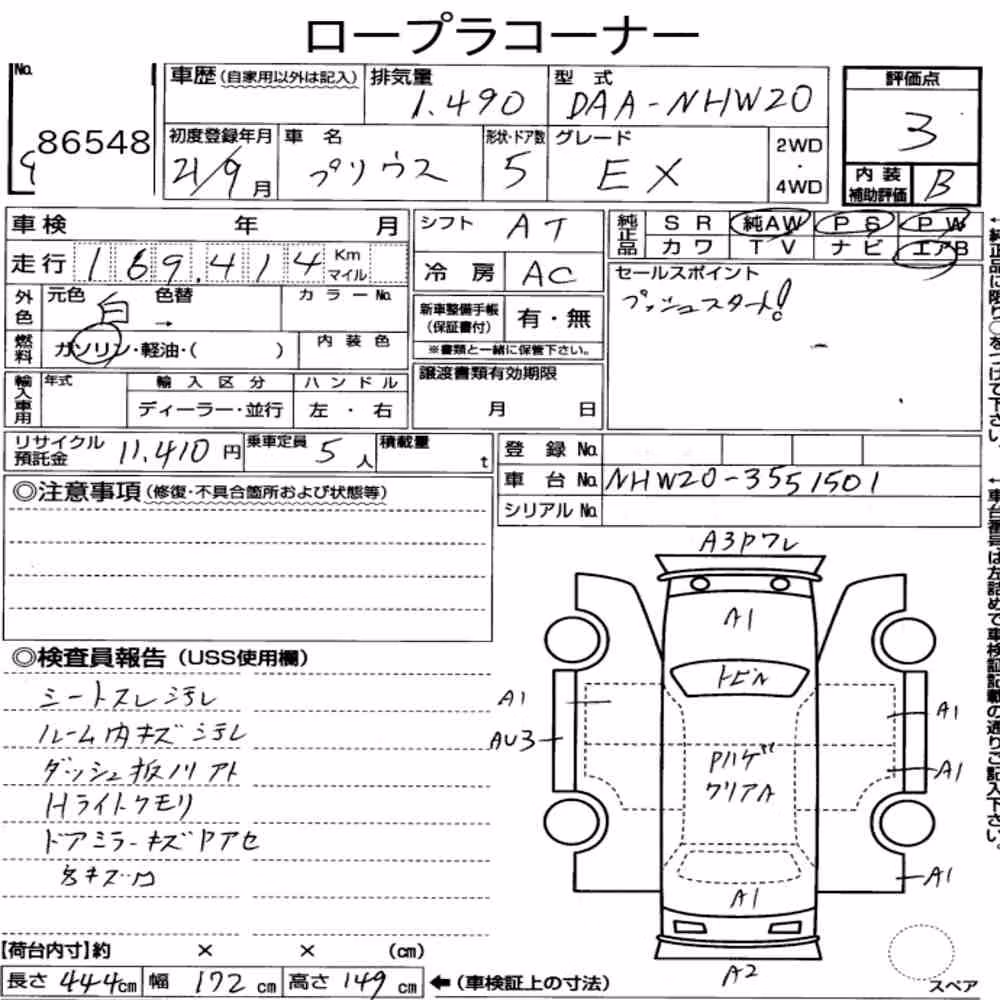 ロープラコーナー
No. 86548
車歴(自家用以外は記入) 排気量 1.490 型式 DAA-NHW20
初度登録年月 21/9月 車名 プリウス 形状・ドア数 5 グレード EX 2WD・4WD
評価点 3
内装補助評価 B
車検 年 月
走行 169,414 Km マイル
外色 元色 白 色替 → カラーNo.
燃料 ガソリン・軽油・( ) 内装色
輸入車用 年式 輸入区分 ハンドル
ディーラー・並行 左・右
シフト AT
冷房 AC
新車整備手帳(保証書付) 有・無
※書類と一緒に保管下さい。
譲渡書類有効期限
月 日
純正品 SR 純AW PS PW
カワ TV ナビ エアB
セールスポイント
プッシュスタート!
←純正品に限り○をつけて下さい。
リサイクル預託金 11.410円 乗車定員 5人 積載量 t
登録No.
車台No. NHW20-3551501
シリアルNo.
←車台番号は左詰めで車検証記載の通りご記入下さい。
◎注意事項(修復・不具合箇所および状態等)
◎検査員報告(USS使用欄)
シートスレ汚レ
ルーム内キズ汚レ
ダッシュ板ノリアト
Hライトクモリ
ドアミラーキズPアセ
各キズ凹
A3Pワレ
A1
トビル
A1
AU3
A1
A1
Pハゲ
クリアA
A1
A1
A2
スペア
【荷台内寸】約 × × (cm)
長さ 444cm 幅 172cm 高さ 149cm ←(車検証上の寸法)